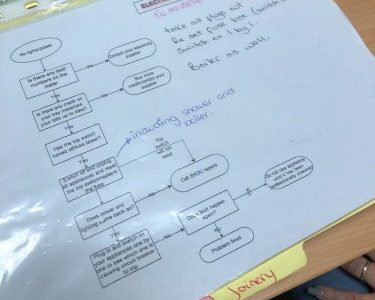 ELECTR
take all plugs out
Re set fuse box (switch
Switch on 1 by 1.
Boiler as well.
No lights/power
Contact your electricity
supplier
Is there any text/
numbers on the
meter
No
Yes
Buy more
credit/contact your
supplier
Is there any credit on
your key meter/are
your bills up to date?
No
Yes
Has the trip switch
turned off/blue down?
Yes
including shower and
boiler.
Switch off and unplug
all appliances and reset
the trip switch/replace
the fuse
Trip
switch
will not
reset
Call BHDC repairs
Does power and
lighting come back on?
No
Yes
Does fault happen
again?
Yes
Do not use appliance
until it has been
professionally checked
No
Problem fixed
Plug in and switch on
your appliances one by
one to see which one is
causing circuit breaker
to trip
Joinery